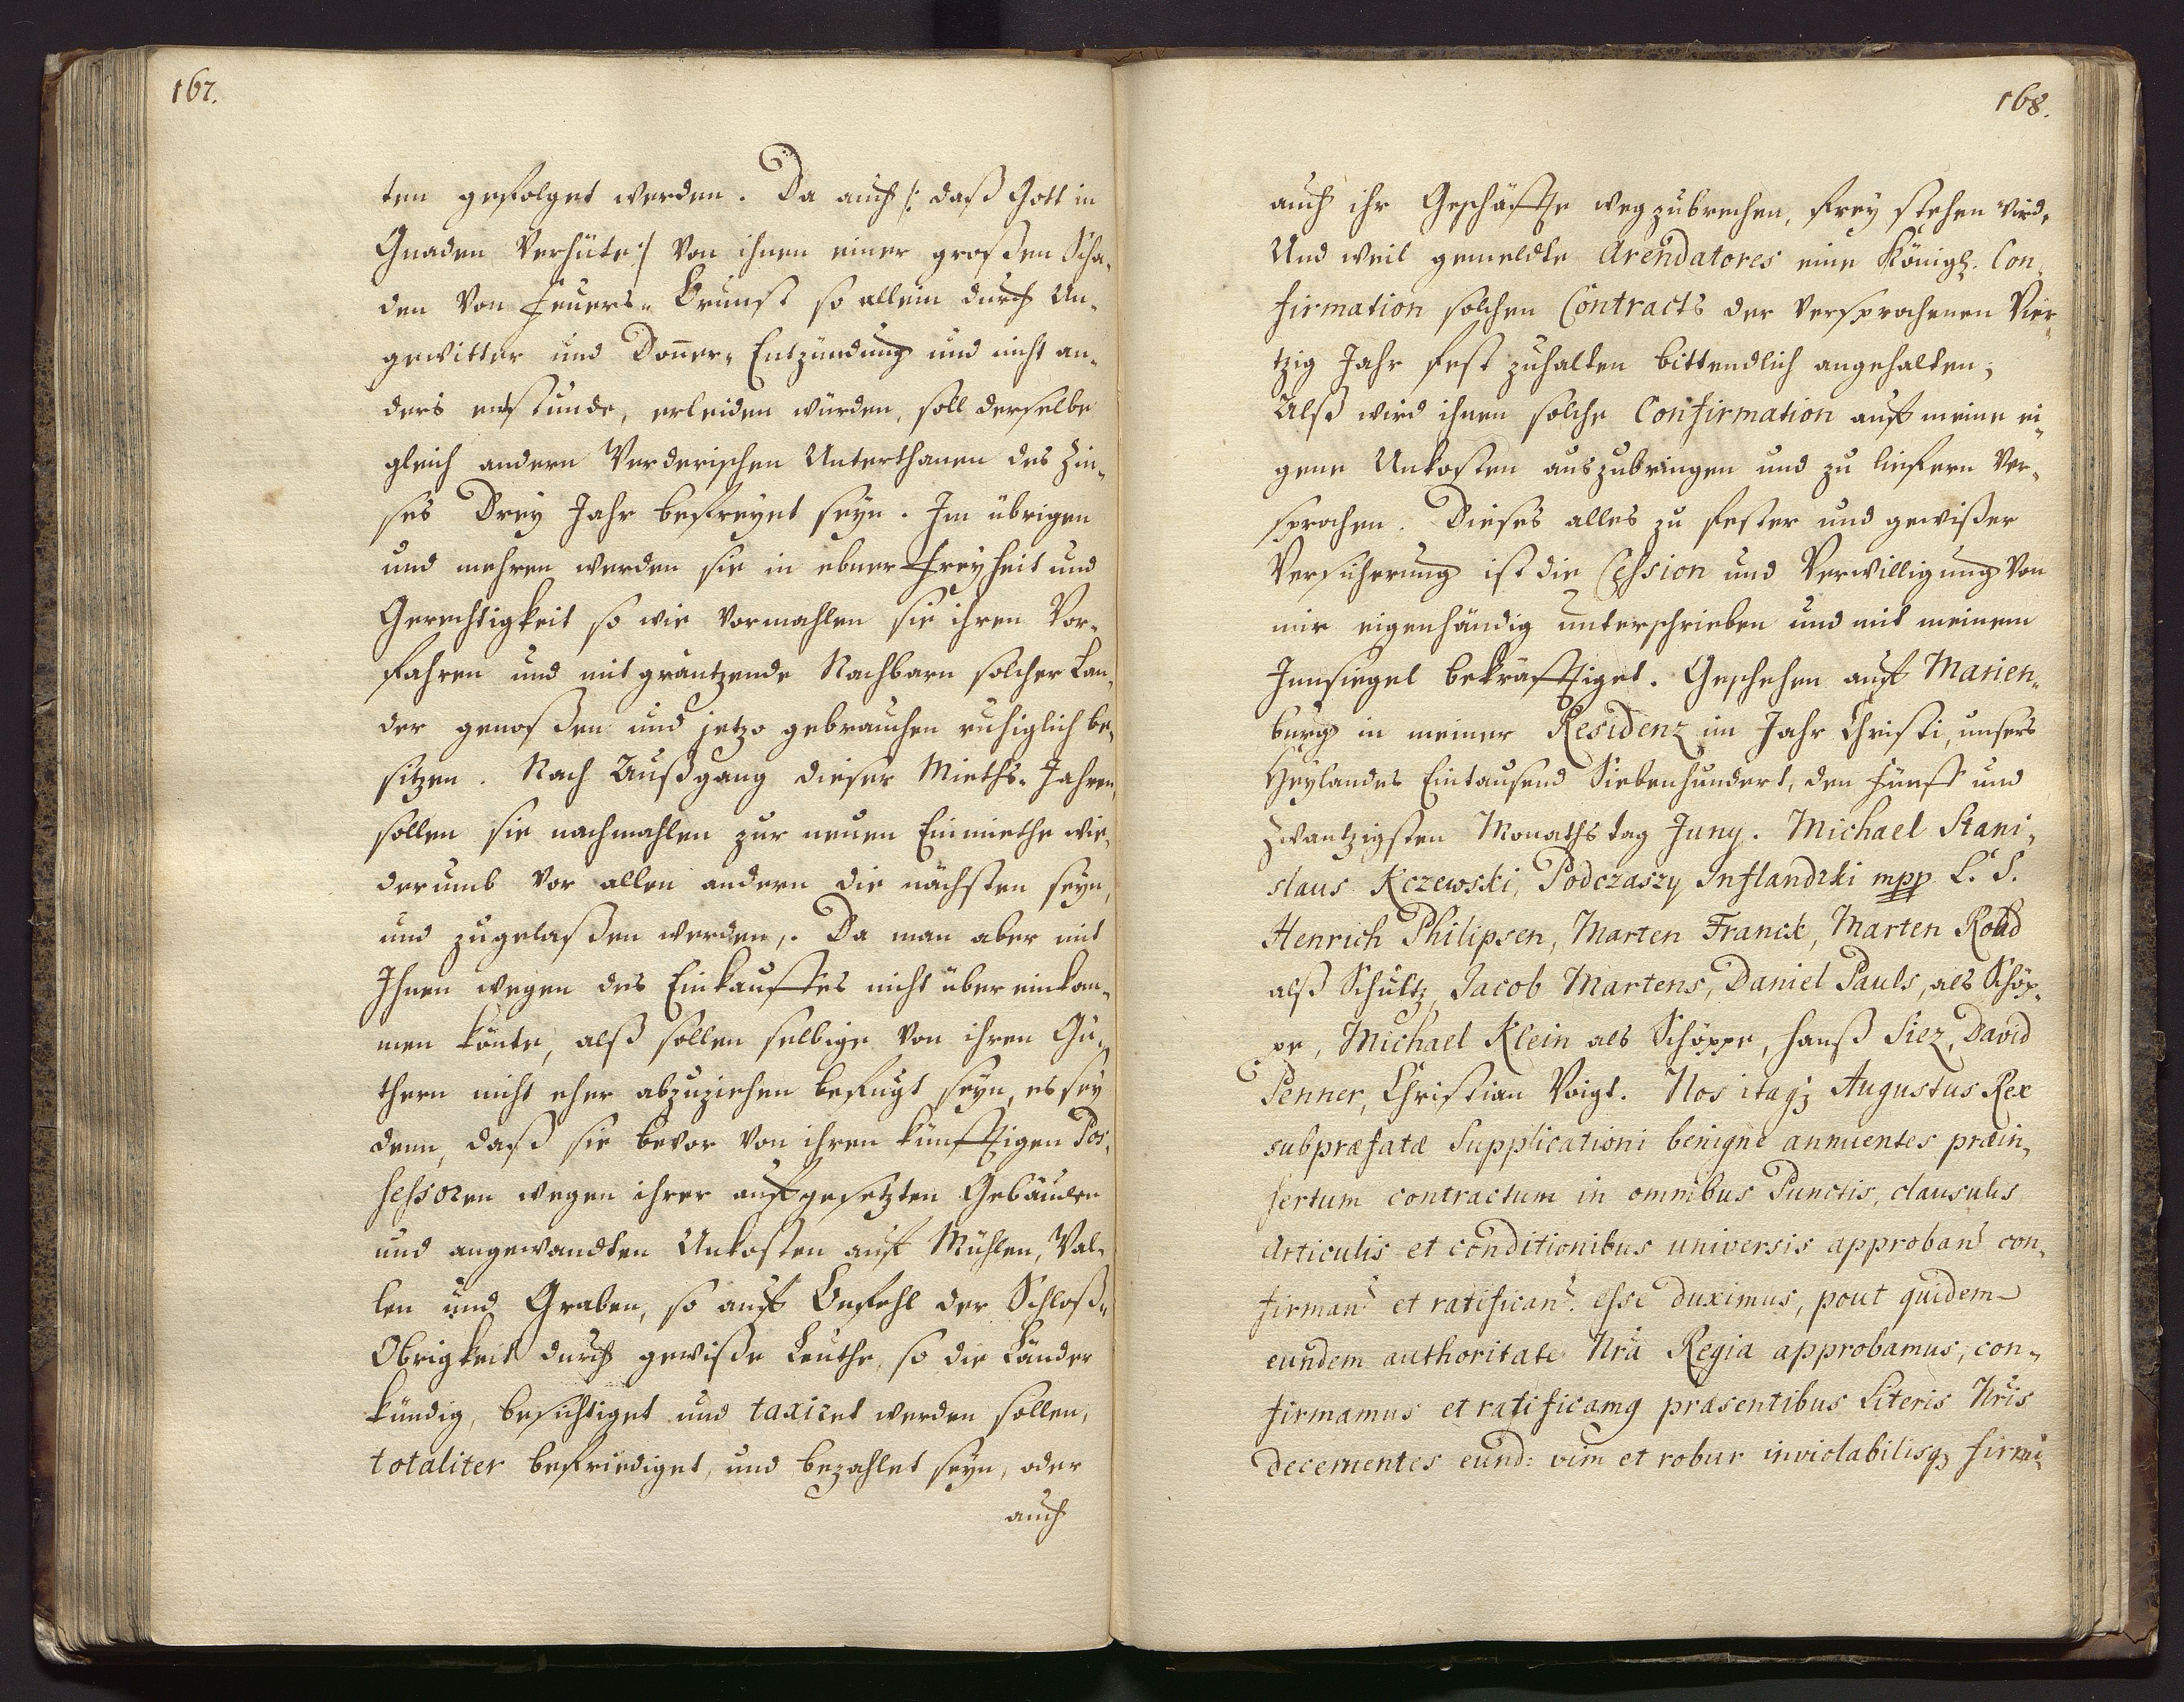 167.
ten gefolget werden. Da auch /: daß Gott in
Gnaden Verhüte :/ Von ihnen einer großen Scha„
den Von Feuers„ Brunst so allein durch Un„
gewitter und Doñer„ Entzündung und nicht an„
ders enstunde, erleiden würden, soll derselbe
gleich andern Werderischen Unterthanen des Zin„
ses Drey Jahr befreyet seyn. Im übrigen
und mehren werden sie in ebner Freyheit und
Gerechtigkeit so wie vormahlen sie ihren Vor„
fahren und mit gräntzende Nachbarn solcher Län„
der genoßen und jetzo gebrauchen ruhiglich be„
sitzen. Nach Außgang dieser Mieths„ Jahren,
sollen sie nachmahlen zur neuen Einmiethe wie„
derumb vor allen andern die nächsten seyn,
und zugelaßen werden,. Da man aber mit
Ihnen wegen des Einkauffes nicht über einkom„
men könte, alß sollen selbige von ihren Gü„
thern nicht eher abzuziehen befugt seyn, es sey
denn, daß sie bevor von ihren künfftigen Pos„
sessoren wegen ihrer auffgesetzten Gebäuden
und angewandten Unkosten auff Mühlen, Wäl„
len und Graben, so auff Befehl der Schloß„
Obrigkeit durch gewiße Leuthe, so die Länder
kündig, besichtiget und taxiret werden sollen,
totaliter befriediget, und bezahlet seyn, oder
auch
168.
auch ihr Geschäffte wegzubrechen, frey stehen wird.
Und weil gemeldte Arendatores eine Königl. Con„
firmation solchen Contracts der versprochenen Vier„
tzig Jahr fest zuhalten bittendlich angehalten;
Alß wird ihnen solche Confirmation auff meine ei„
gene Unkosten auszubringen und zu liefern Ver„
sprochen. Dieses alles zu fester und gewißer
Versicherung ist die Cession und Verwilligung von
mir eigenhändig unterschrieben und mit meinem
Innsiegel bekräfftiget. Geschehen auff Marien„
burg in meiner Residenz im Jahr Christi, unsers
Heylandes Eintausend Siebenhundert, den fünff und
Zwantzigsten Monaths tag Juny. Michael Stani„
slaus Kczewski, Podczaszy Inflandzki mpp L. S.
Henrich Philipsen, Marten Franck, Marten
alß Schultz, Jacob Martens, Daniel Pauls, als Schöp„
pe, Michael Klein als Schöppe, Hanß Siez, David
Penner, Christian Voigt. Nos itaqꝫ Augustus Rex
subpræfatæ Supplicationi benigne annuentes præin„
sertum contractum in omnibus Punctis, clausulis
Articulis et conditionibus universis approband con„
firmand et ratificand. esse duximus, pout quidem
eundem authoritate Nrã Regia approbamus, con„
firmamus et ratificamꝯ præsentibus Literis Nrĩs
decernentes eund: vim et robur inviolabilisqꝫ firmi„